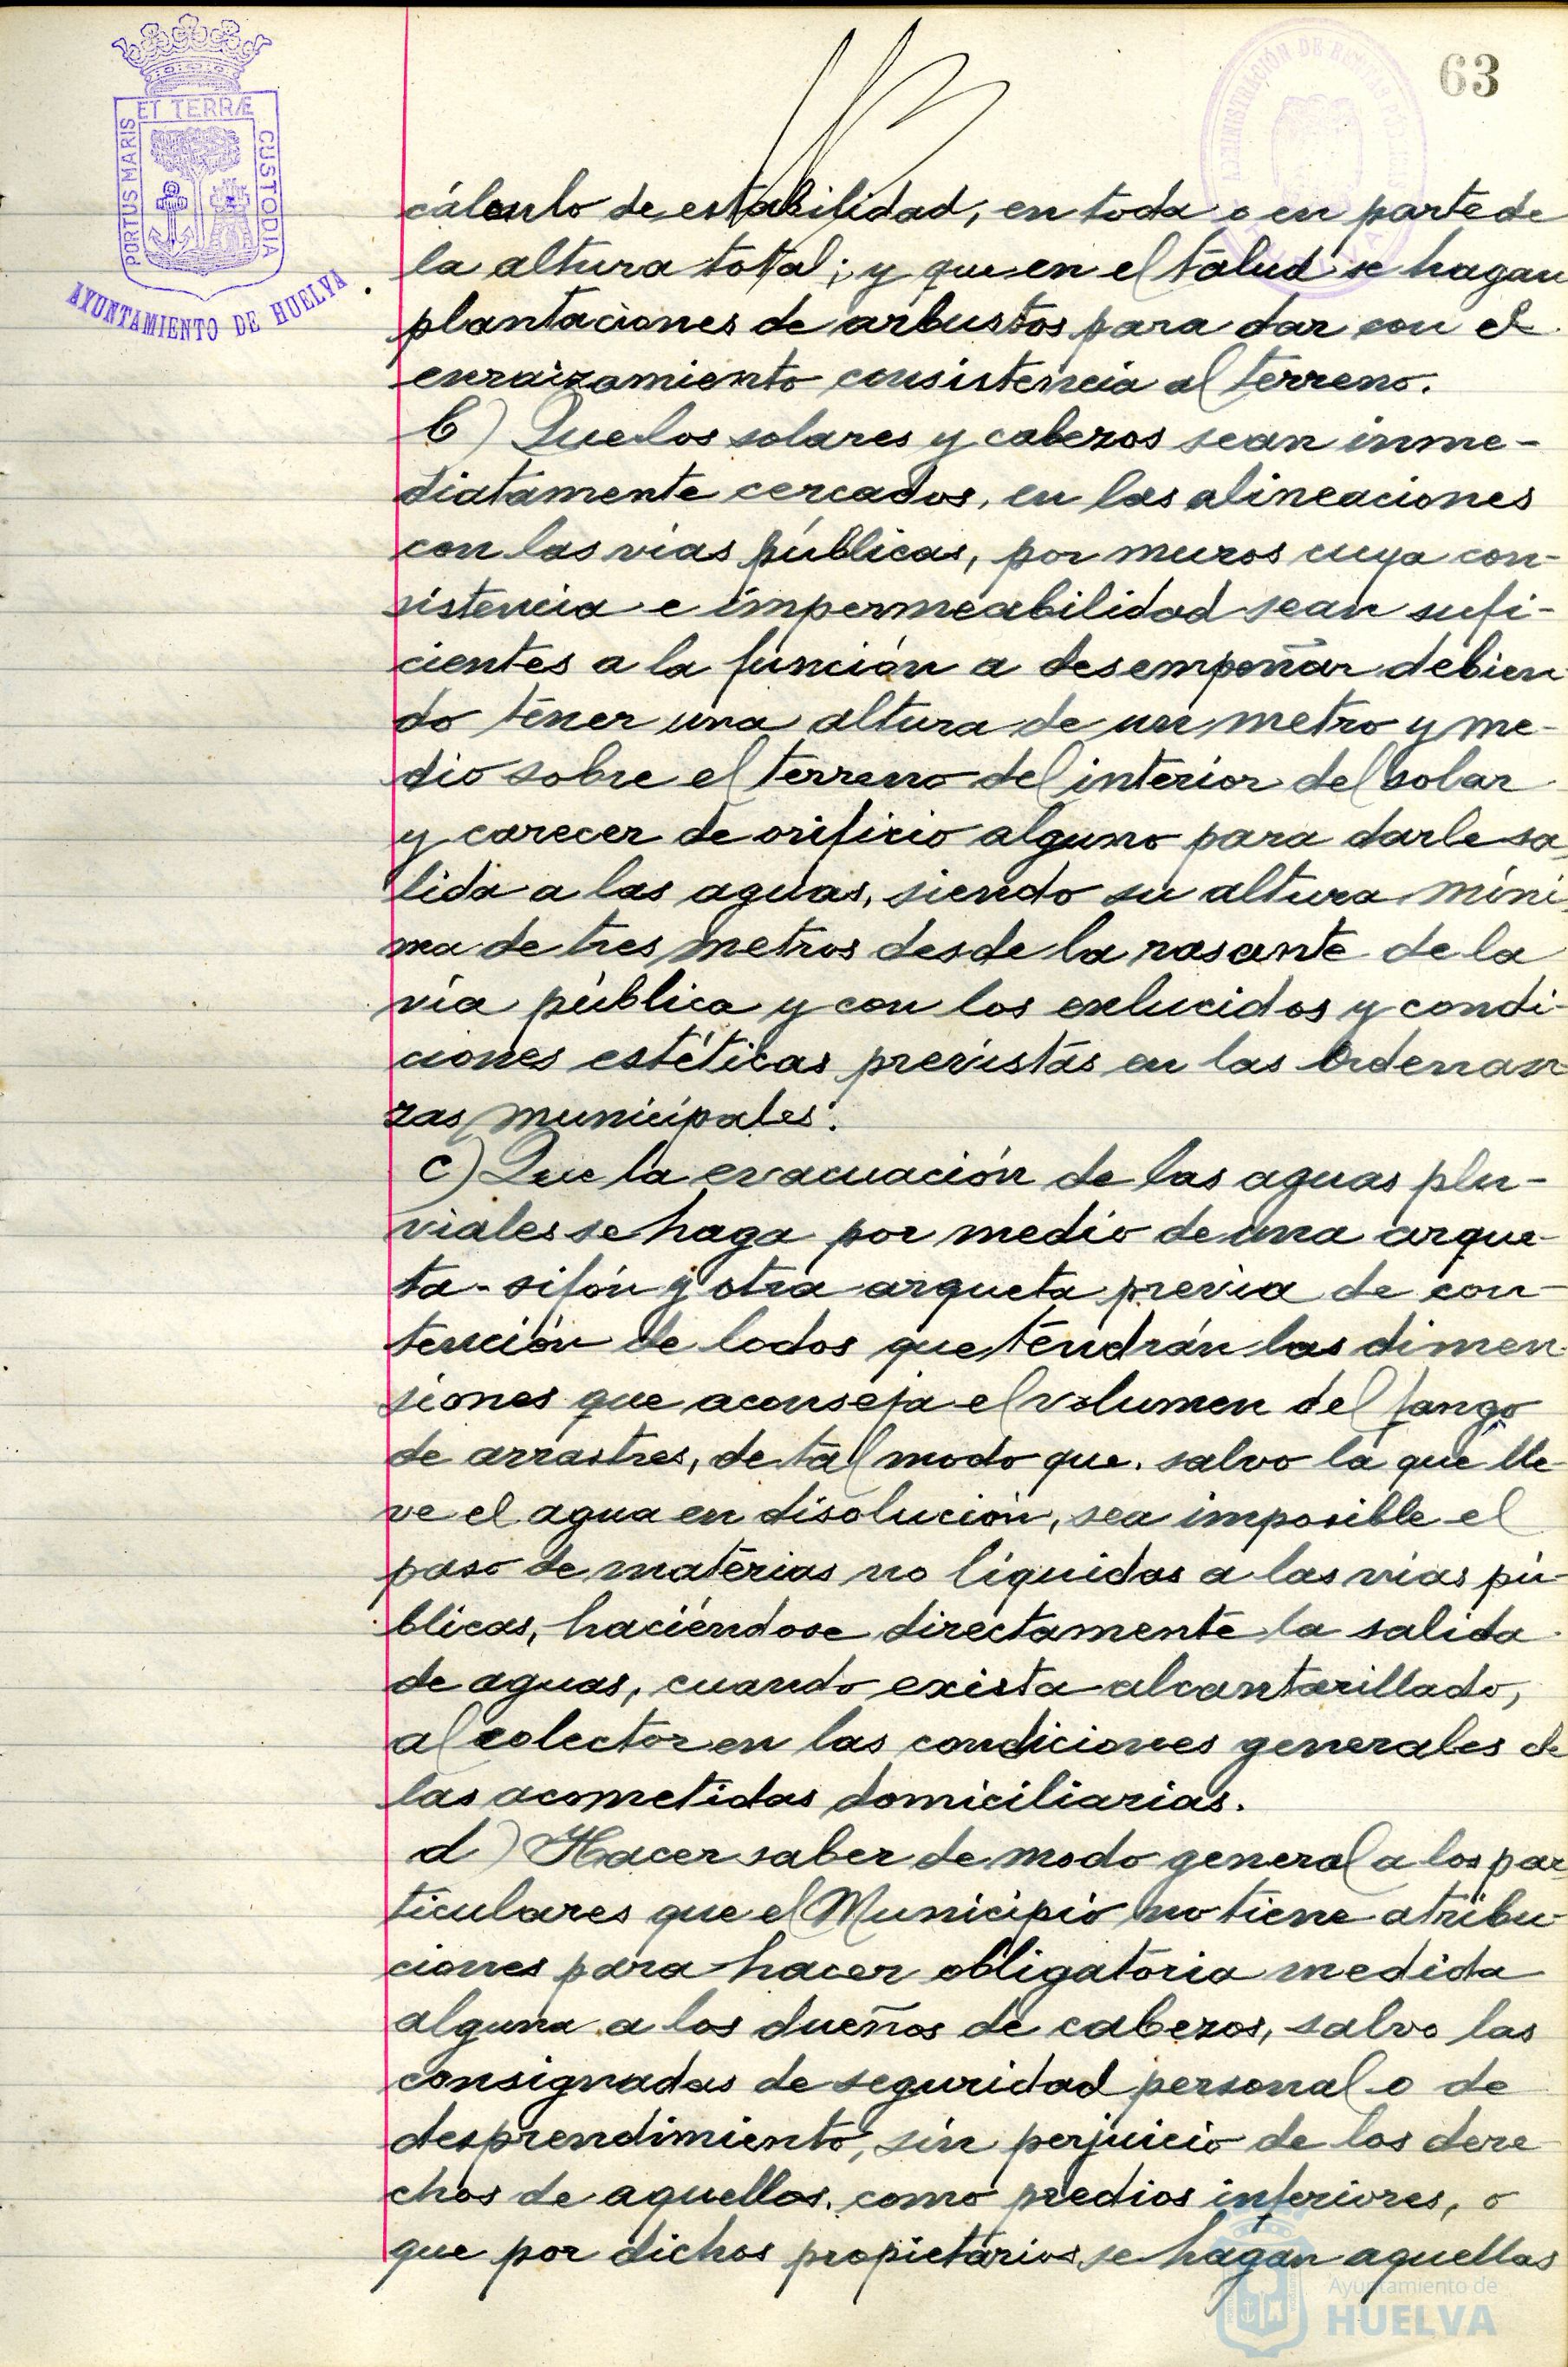 63
ET TERRÆ
PORTUS MARIS
CUSTODIA
AYUNTAMIENTO DE HUELVA
ADMINISTRACIÓN DE RENTAS
cálculo de estabilidad, en toda o en parte de
la altura total; y que en el talud se hagan
plantaciones de arbustos para dar con el
enraizamiento consistencia al terreno.
b) Que los solares y cabezos sean inme-
diatamente cercados, en las alineaciones
con las vias públicas, por muros cuya con-
sistencia e impermeabilidad sean sufi-
cientes a la función a desempeñar debien
do tener una altura de un metro y me-
dio sobre el terreno del interior del solar
y carecer de orificio alguno para darle sa
lida a las aguas, siendo su altura míni
ma de tres metros desde la rasante de la
via pública y con los enlucidos y condi-
ciones estéticas previstas en las Ordenan
zas municipales.
c) Que la evacuación de las aguas plu-
viales se haga por medio de una arque-
ta-sifón y otra arqueta previa de con-
tención de lodos que tendrán las dimen-
siones que aconseja el volumen del fango
de arrastres, de tal modo que, salvo la que lle
ve el agua en disolución, sea imposible el
paso de materias no líquidas a las vias pú-
blicas, haciéndose directamente la salida
de aguas, cuando exista alcantarillado,
al colector en las condiciones generales de
las acometidas domiciliarias.
d) Hacer saber de modo general a los par
ticulares que el Municipio no tiene atribu-
ciones para hacer obligatoria medida
alguna a los dueños de cabezos, salvo las
consignadas de seguridad personal o de
desprendimiento, sin perjuicio de los dere
chos de aquellos, como predios inferiores, o
que por dichos propietarios se hagan aquellas
Ayuntamiento de
HUELVA